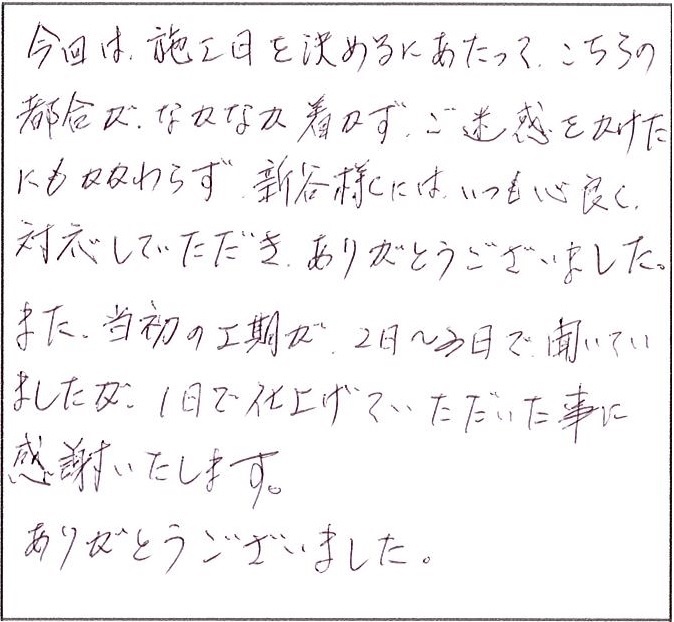 今回は、施工日を決めるにあたって、こちらの
都合が、なかなか着かず、ご迷惑をかけた
にもかかわらず、新谷様には、いつも心良く、
対応していただき、ありがとうございました。
また、当初の工期が、2日〜3日で、聞いてい
ましたが、1日で仕上げていただいた事に
感謝いたします。
ありがとうございました。